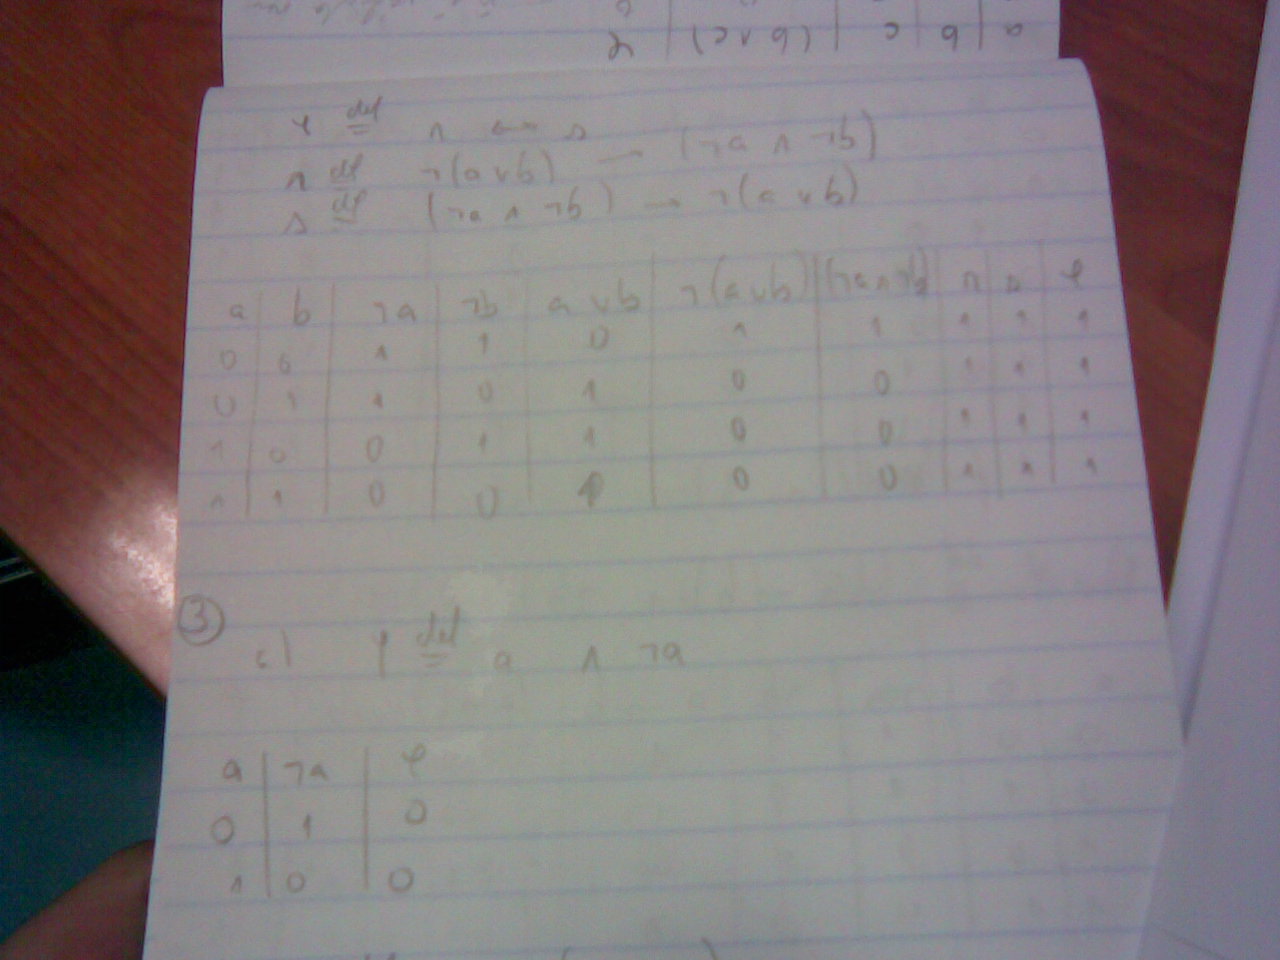 a | b | c | (b ∨ c) | φ
φ def= r ↔ s
r def= ¬(a ∨ b) → (¬a ∧ ¬b)
s def= (¬a ∧ ¬b) → ¬(a ∨ b)
a | b | ¬a | ¬b | a ∨ b | ¬(a ∨ b) | (¬a ∧ ¬b) | r | s | φ
0 | 0 | 1 | 1 | 0 | 1 | 1 | 1 | 1 | 1
0 | 1 | 1 | 0 | 1 | 0 | 0 | 1 | 1 | 1
1 | 0 | 0 | 1 | 1 | 0 | 0 | 1 | 1 | 1
1 | 1 | 0 | 0 | 1 | 0 | 0 | 1 | 1 | 1
3
c) φ def= a ∧ ¬a
a | ¬a | φ
0 | 1 | 0
1 | 0 | 0